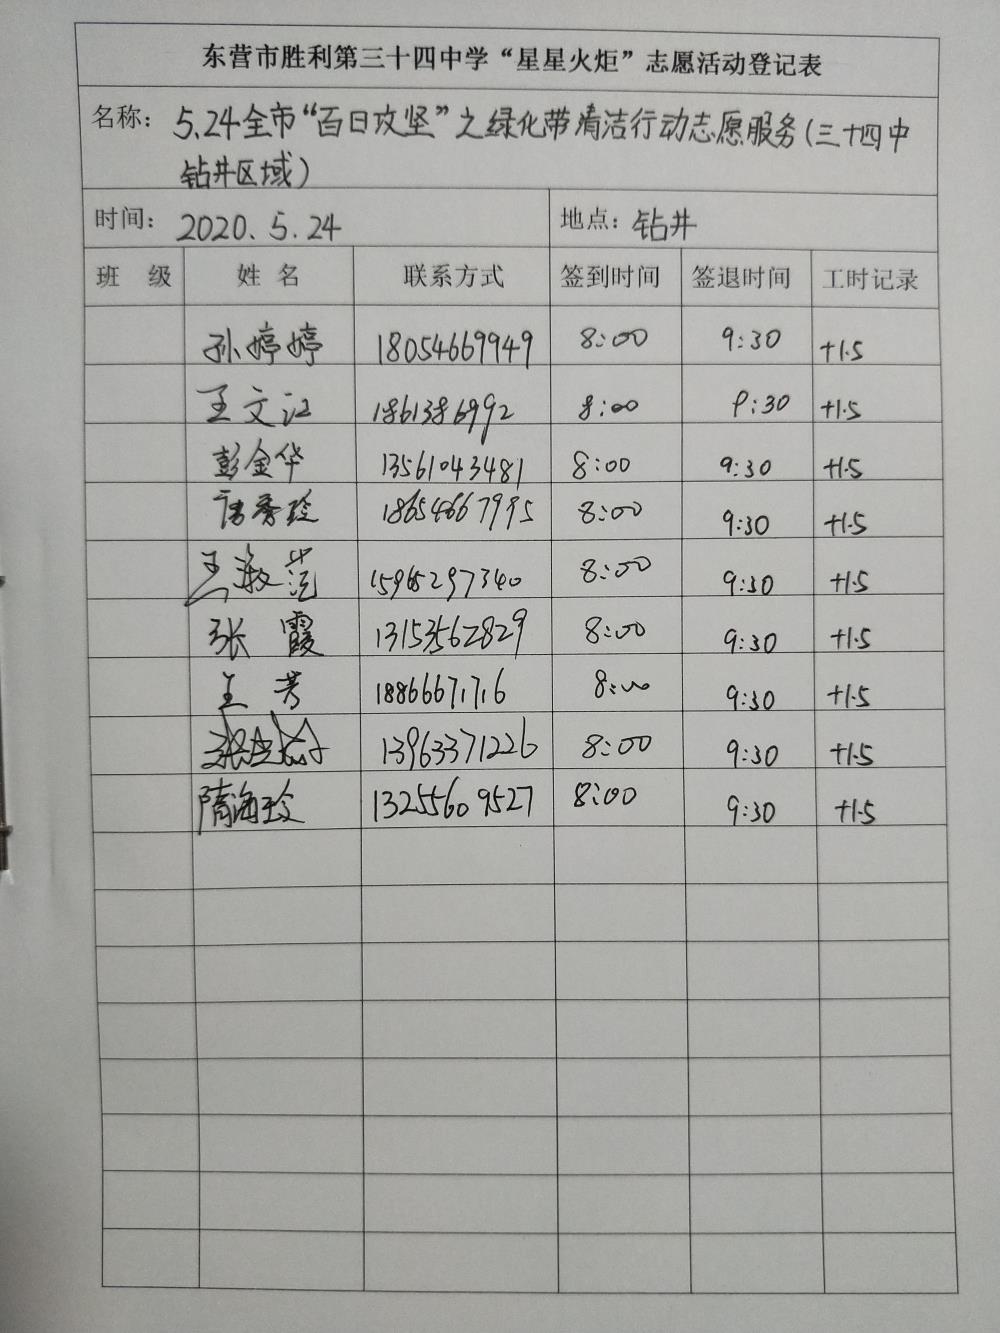 东营市胜利第三十四中学“星星火炬”志愿活动登记表
名称：5.24全市“百日攻坚”之绿化带清洁行动志愿服务(三十四中
钻井区域)
时间：2020.5.24 地点：钻井
班 级 姓 名 联系方式 签到时间 签退时间 工时记录
孙婷婷 18054669949 8:00 9:30 +1.5
王文江 1861386992 8:00 9:30 +1.5
彭金华 13561043481 8:00 9:30 +1.5
秀玲 18654667995 8:00 9:30 +1.5
王淑范 15965297340 8:00 9:30 +1.5
张霞 13153562829 8:00 9:30 +1.5
王芳 18866671716 8:00 9:30 +1.5
张 13963371226 8:00 9:30 +1.5
隋海玲 13255609527 8:00 9:30 +1.5